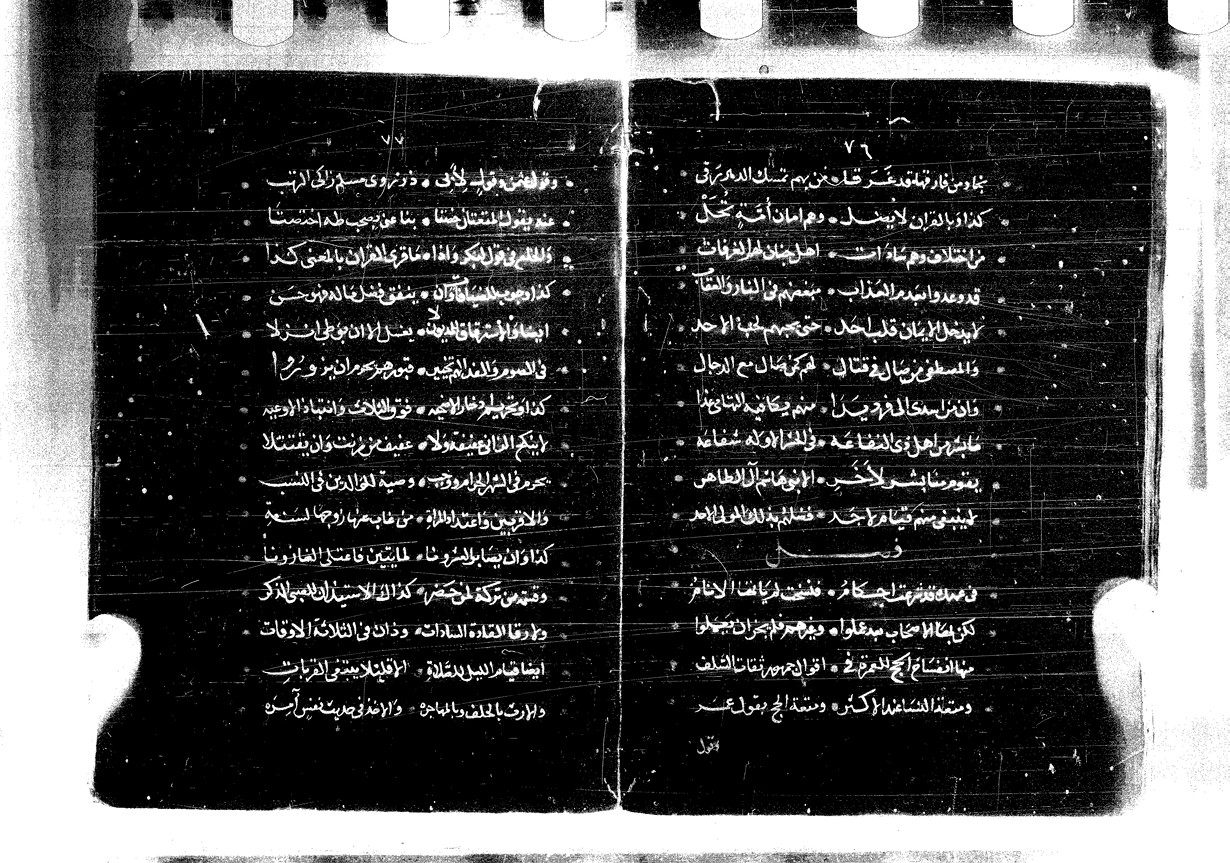 ٧٦
نجا ومن فارقها قد غرقا • فمن بهم تمسك الدهر يرقى
كذا وبالقران لا يضل • وهم امان أمة تحل
من اختلاف وهم سادات • اهل جنان لهم الغرفات
قد وعدوا بعدم العذاب • مبغضهم في النار والنقاب
لا يدخل الايمان قلب احد • حتى يحبهم لحب الاحد
والمصطفى من صال في قتال • لهم كمن صال مع الدجال
وان من اسدى الى فرد يدا • منهم يكافيه التهامي غدا
ما بشر من اهل ذي الشفاعه • في الحشر الا وله شفاعه
يقوم منا بشر لآخر • الا بنو هاشم آل الطاهر
لا ينبغي منهم قيام لاحد • فضلهم بذلك المولى الاحد
فصل
في عهدك قد شرعت احكام • فنسخت لم ياتها الانام
لكن بها الاصحاب بعد عملوا • وغيرهم فلم يجز ان يعملوا
منها انفساخ الحج للعمرة في • اقوال جمهور ثقات السلف
ومتعة النسا عند الاكثر • ومتعة الحج بقول عمر
وقول
٧٧
وقول عثمن وقول لأبي • ذر روى مسلم زاكي النسب
عنه يقول المتعتان حقتا • بنا عن بصحب طه اختصتا
والخلع في قول لبكر واذا • ما قرى القران بالمعنى كذا
كذا وجوب للضيافة وان • ينفق فضل ماله فهو حسن
ايضا ولا استرقاق للمديون • يغسل الا ان يوطى انزلا
في الصوم والفدا لهم تخيير • قبورهم يحرم ان يزوروا
كذا وتحريم ادخار الاضحيه • فوق الثلاث وانتباذ الاوعيه
لا ينكح الزاني عفيفة ولا • عفيف من زنت وان يقتتلا
يحرم في الشهر الحرام ووجب • وصية للوالدين في النسب
والاقربين واعتداد المراة • من غاب عنها زوجها لسنة
كذا وان يصابر العشرونا • لمايتين فاعتلى الغازونا
وقسم من تركة لمن حضر • كذاك الاستيذان للصبي الذكر
وبل وقا القادة السادات • وذان في الثلاثة الاوقات
ايضا قيام الليل للصلاة • الا قليلا يبتغى القربات
والارث بالحلف وبالمهاجره • والاخذ في حديث نفس آمره